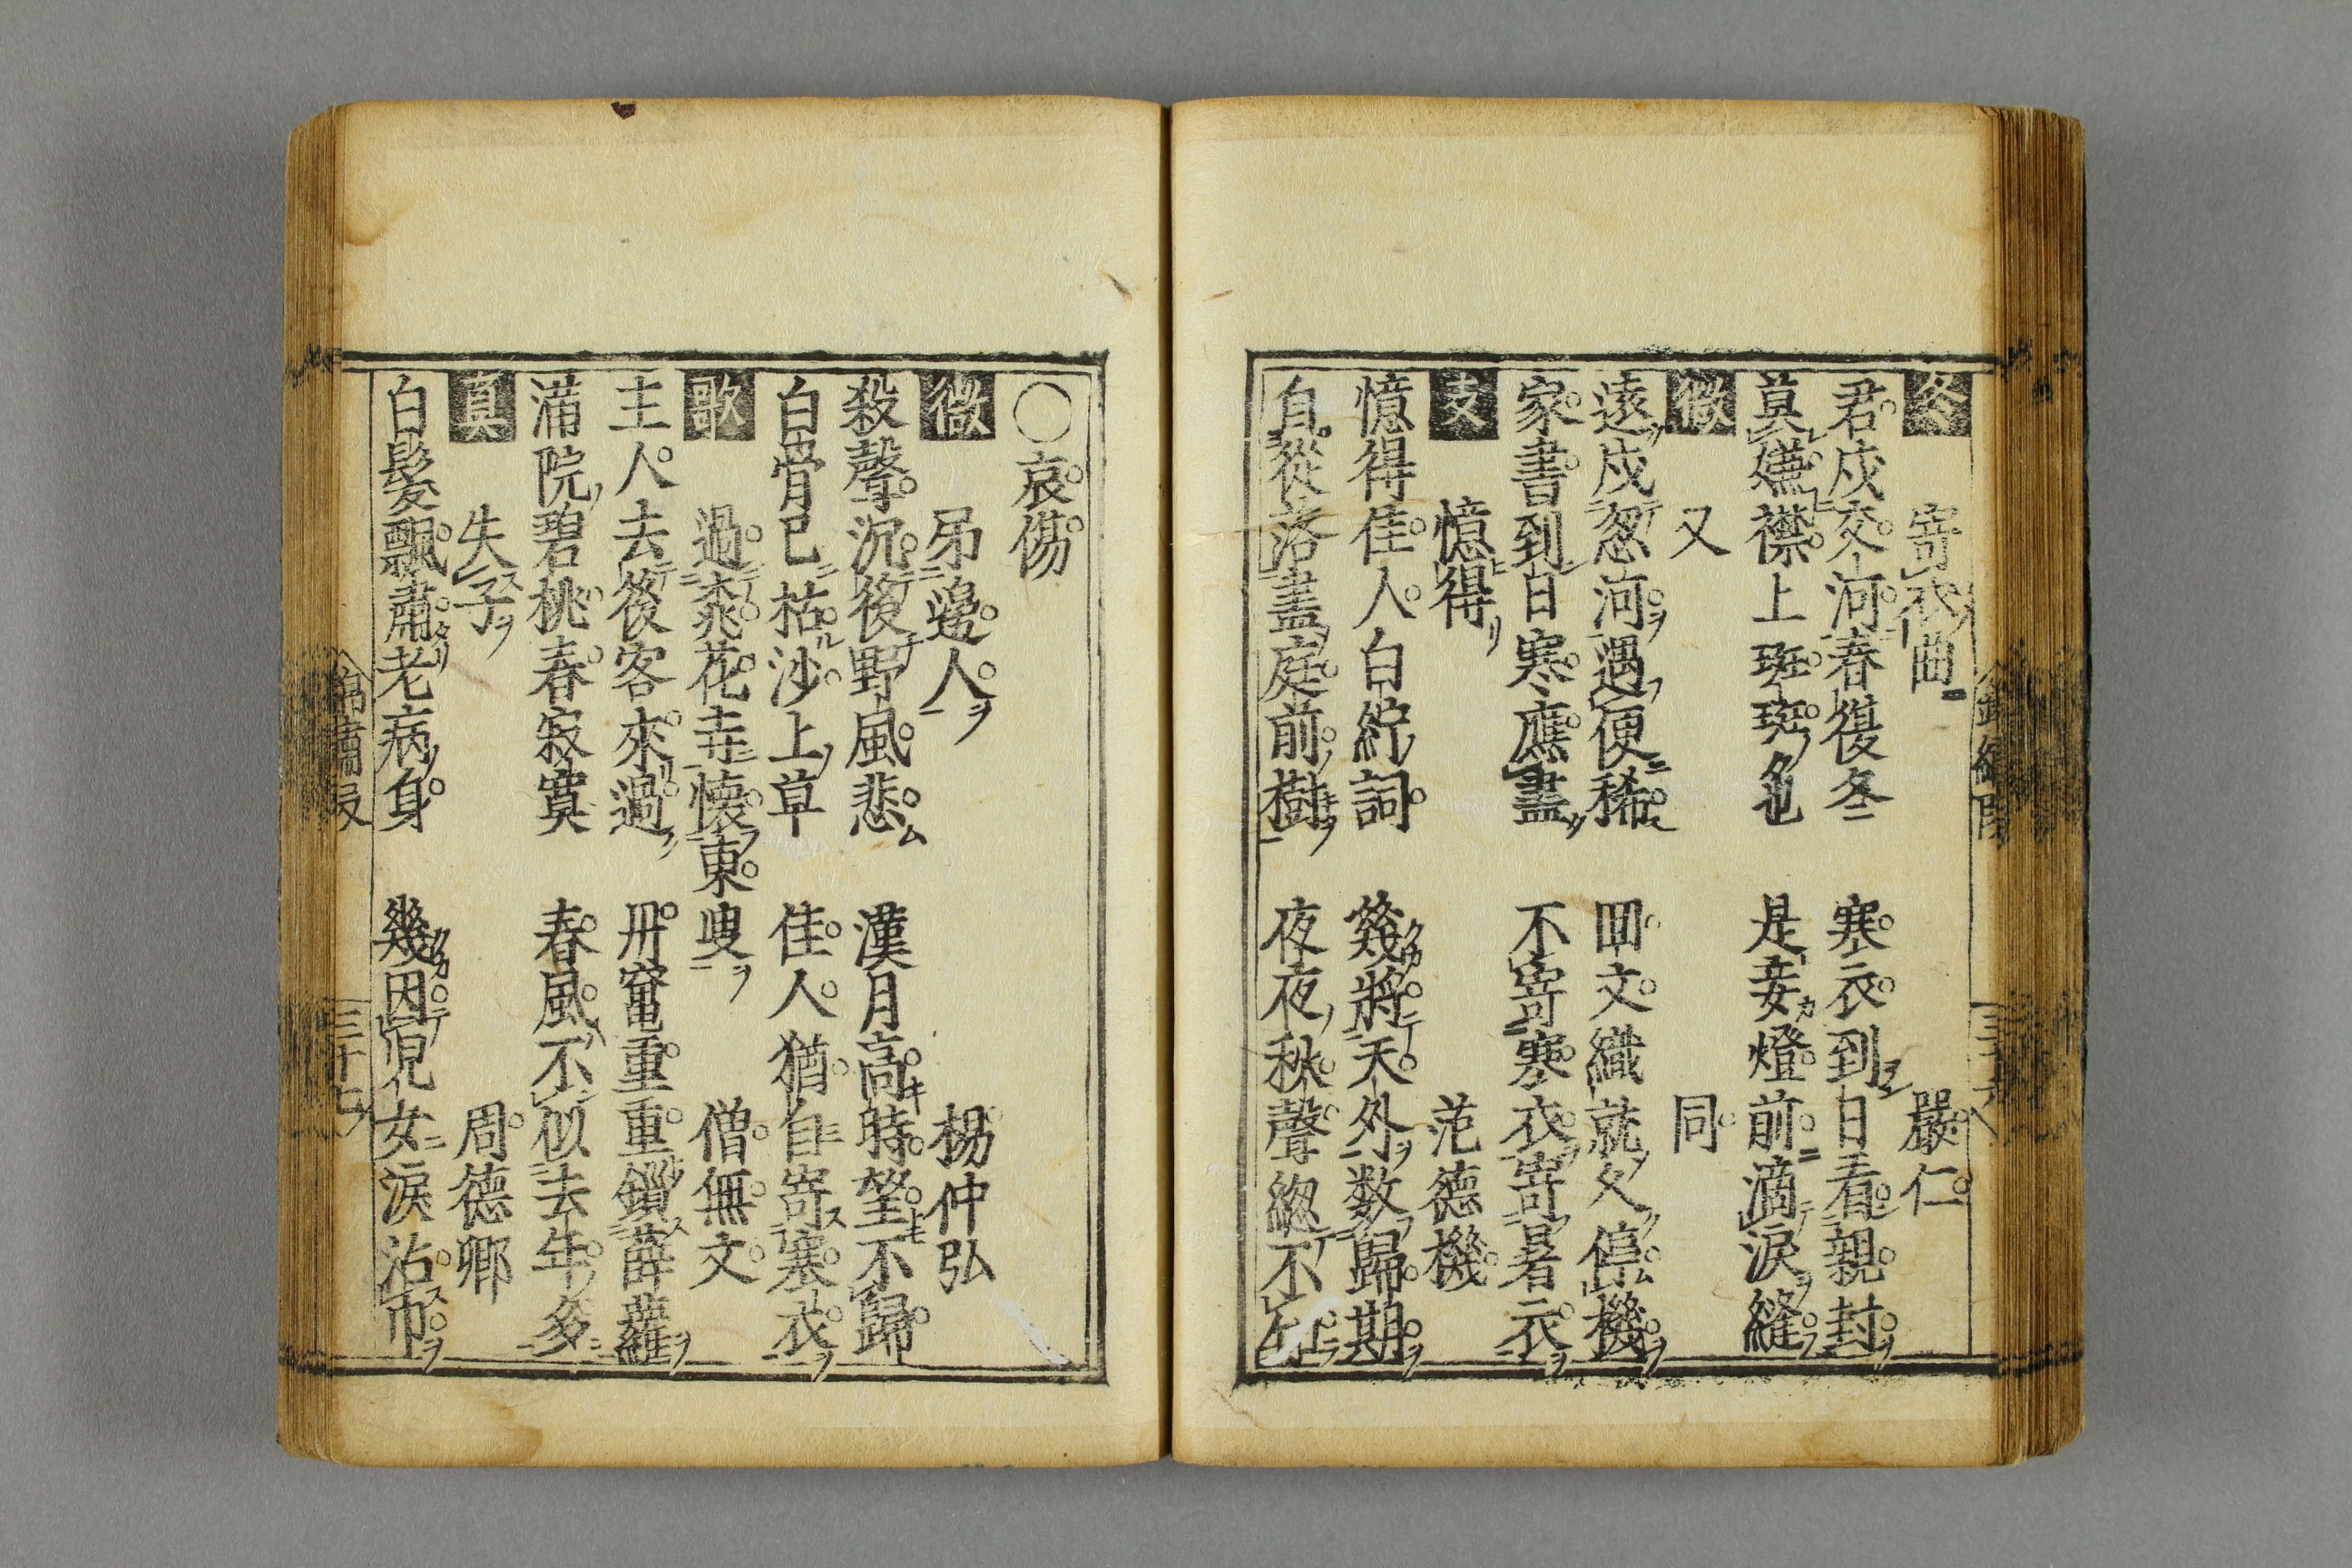 冬 寄衣曲 嚴仁
君戍交河春復冬 寒衣到日看親封
莫嫌襟上斑斑色 是妾燈前滴淚縫
微 又 同
遠戍怱河遇便稀 回文織就久停機
家書到日寒應盡 不寄寒衣寄暑衣
支 憶得 范德機
憶得佳人白紵詞 幾將天外数歸期
自從落盡庭前樹 夜夜秋聲緫不
三十六
〇哀傷
微 吊邊人 楊仲弘
殺聲沉後野風悲 漢月高時望不歸
白骨已枯沙上草 佳人猶自寄寒衣
歌 過柰花寺懷東叟 僧無文
主人去後客來過 丹竈重重鎻薜蘿
滿院碧桃春寂寞 春風不似去年多
真 失子 周德卿
白髮飄蕭老病身 幾因兒女淚沾巾
三十七